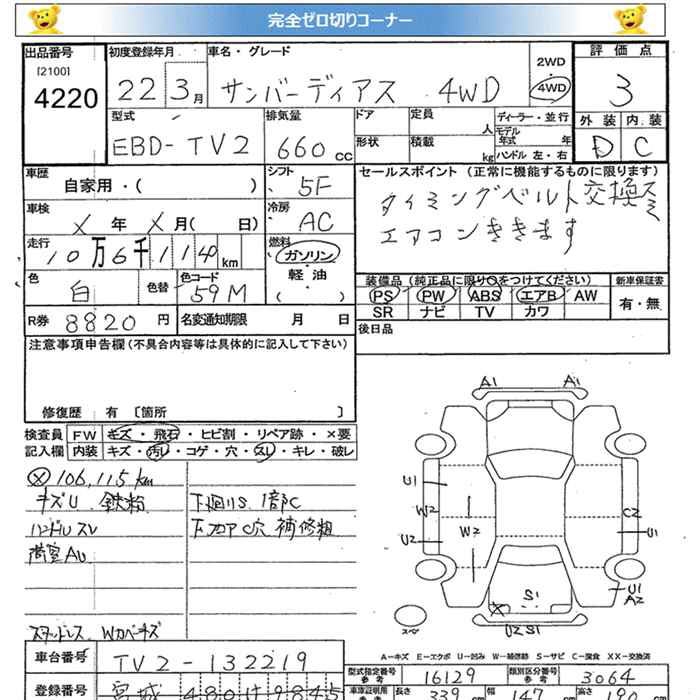 完全ゼロ切りコーナー
出品番号 初度登録年月 車名・グレード 2WD 評価点
[2100]
4220 22 3月 サンバーディアス 4WD 4WD 3
型式 排気量 ドア 定員 人 ディーラー・並行 外装 内装
EBD-TV2 660cc 形状 積載 kg モデル年式 年 D C
ハンドル 左・右
車歴 シフト セールスポイント (正常に機能するものに限ります)
自家用・( ) 5F タイミングベルト交換スミ
車検 冷房 エアコンききます
X 年 X 月( 日) AC
走行 燃料
10万6千114km ガソリン
色 色替 色コード 軽油 装備品(純正品に限り○をつけてください) 新車保証書
白 59M ( ) PS PW ABS エアB AW 有・無
SR ナビ TV カワ
R券 8820円 名変通知期限 月 日 後日品
注意事項申告欄(不具合内容等は具体的に記入して下さい)
修復歴 有 〔箇所 〕
検査員 FW キズ・飛石・ヒビ割・リペア跡・×要
記入欄 内装 キズ・汚レ・コゲ・穴・スレ・キレ・破レ
106,115km
キズU 鉄粉 下廻りS 1部C
ハンドルスレ 下フロアC穴 補修粗
荷室AU
Wカバーキズ
A1 A1
U1
W2 W2 C2
U2 U1
S1 U1
A2
X
スペア U2 S1
A−キズ E−エクボ U−凹み W−補修跡 S−サビ C−腐食 XX−交換済
車台番号 TV2-132219
型式指定番号 参考 16129 類別区分番号 参考 3064
登録番号 宮城 480 け 9845
車庫証明用 参考 長さ 339 cm 幅 147 cm 高さ 190 cm